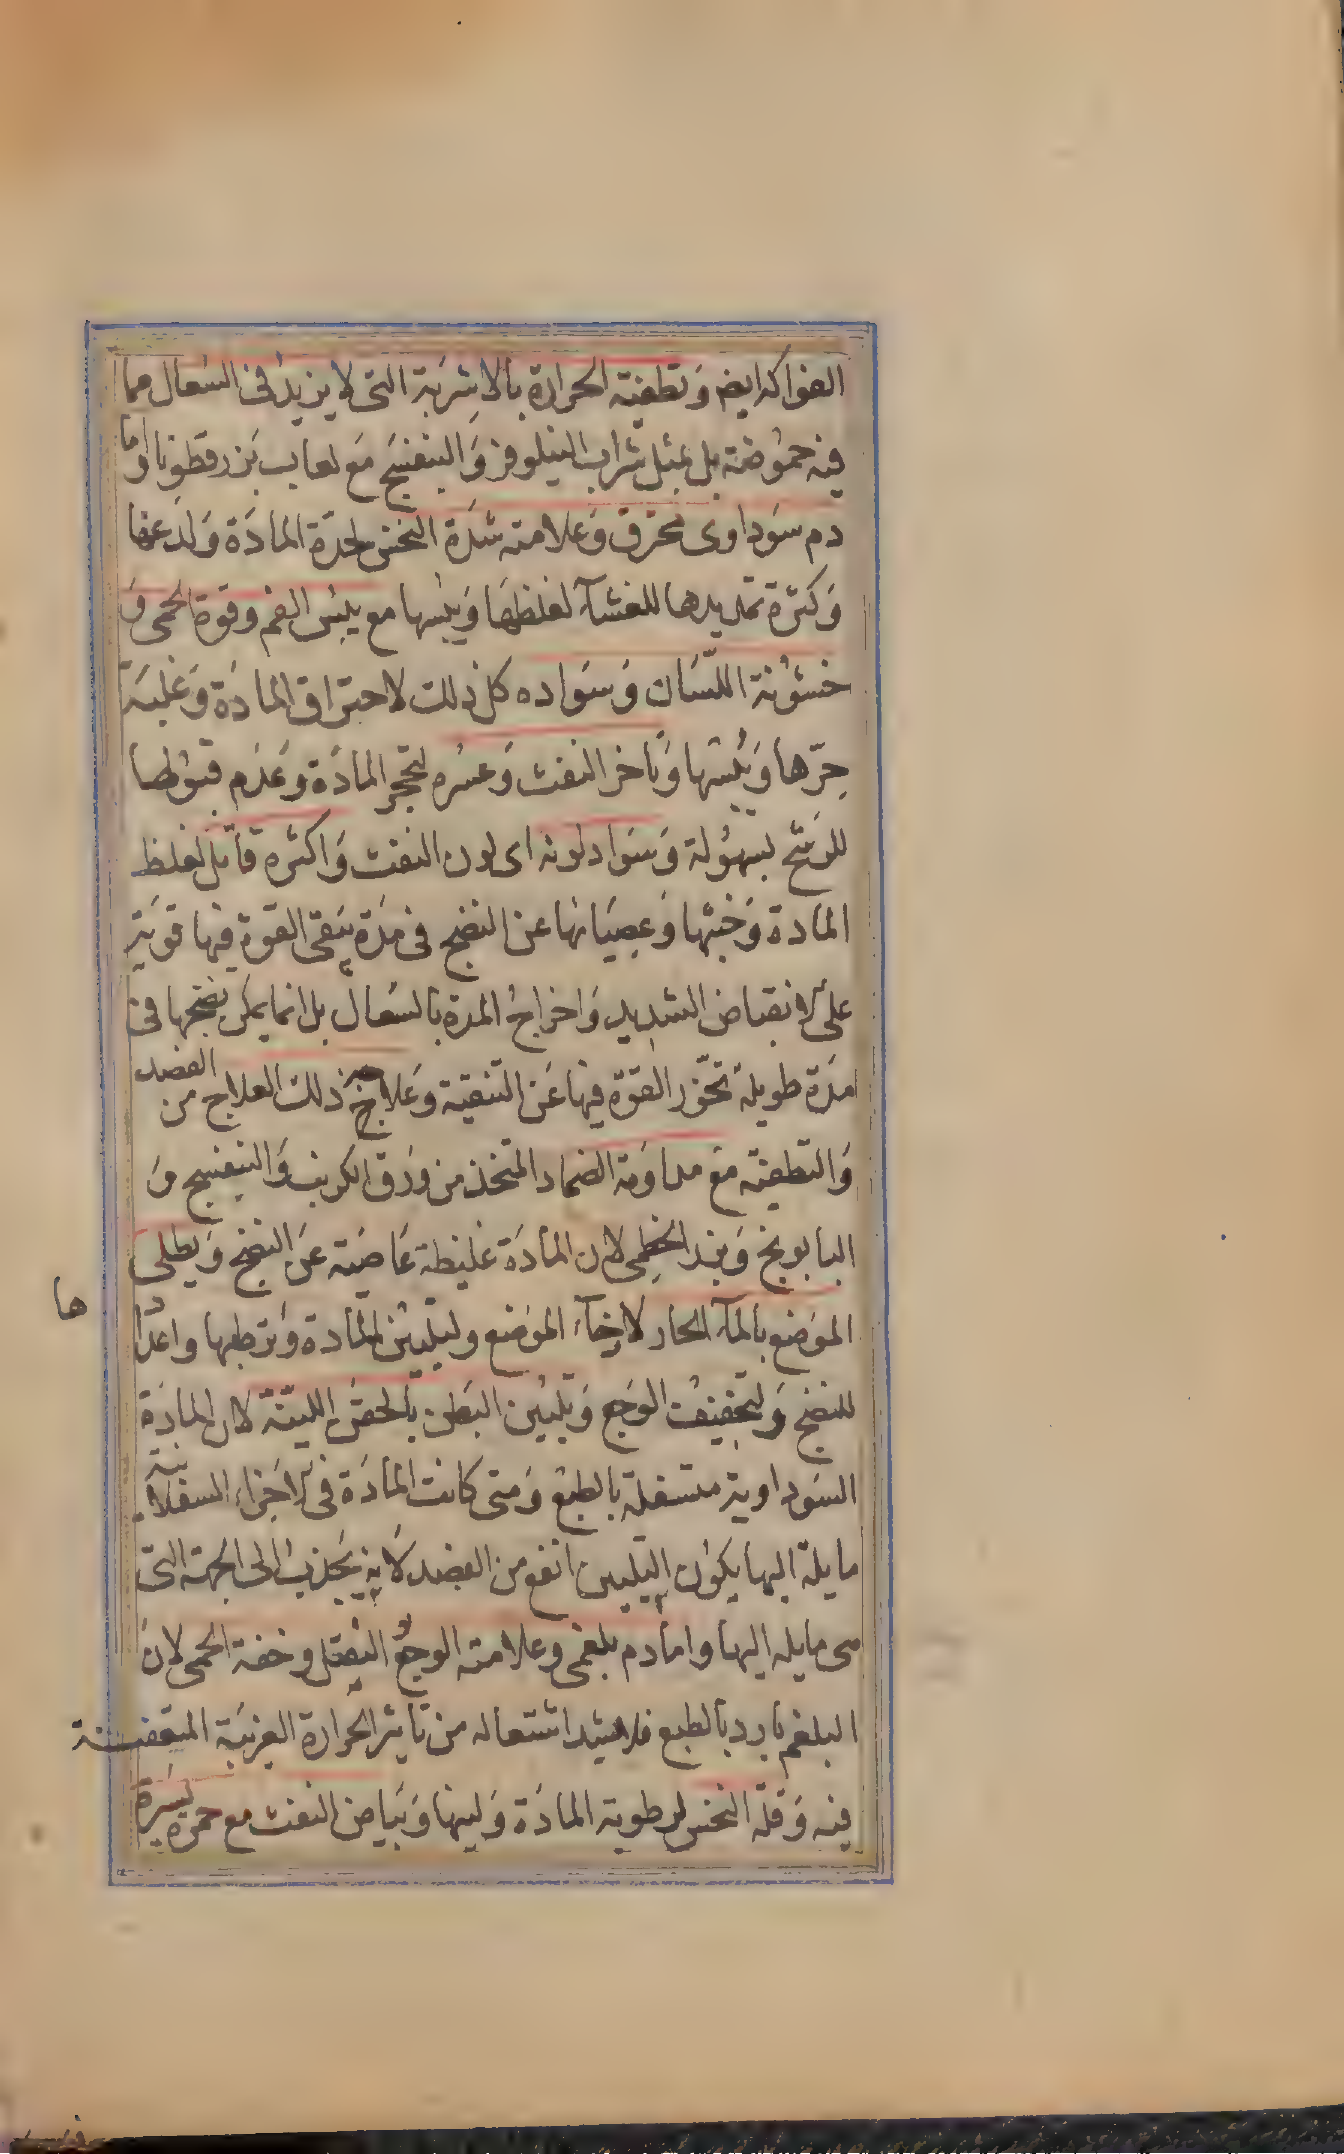 الفواكه ايض وَتطفئة الحرارة بالاشربَة التى لا يزيد فى السّعال مما
فيه حموُضة بل بمثل شراب النيلوفر وَالبنفسَج مَع لعاب بَزر قطونا وَاما
دم سَوداوى محترق وَعلامته شدَة النخس لحدّة المادَة وَلذعها
وَكثرَة تمديدها للغشآء لغلظهَا وَيبسها مع يبس الفم وقوة الحمى وَ
خشوُنة اللّسَان وَسَواده كل ذلك لاحتراق المادَة وَغلبَة
حِرّها وَيُبسهَا وَتاخر النفث وَعسره لتحجر المادَة وعَدم قبوُلها
للرشح بسهوُلة وَسَواد لونه اى لون النفث وَاكثره قاتل لغلظ
المادة وَخبثها وَعِصيَانها عن النضج فى مدَة يبَقى القوة فيها قويَة
على الانقباض الشديد وَاخراج المدة بالسّعال بل انما يمكن نضجها فى
مدَة طويلة تخوّر القوّة فيها عَن التنقية وَعلاجه ذلك العلاج من الفصد
وَالتطفئة مَع مداوَمة الضماد المتخذ من ورَق الكرنب وَالبنفسج وَ
البابونج وَبزر الخطمى لان المادَة غليظة عَاصَية عَن النضج وَيطلى
الموَضع بالمآء الحار لارخآء الموَضع ولتليين المادة وَترطيبها واعدا
ها
للنضج وَلتخفيف الوَجع وَتليين البَطن بالحقن الليّنة لان المادَة
السَوداوية متسفلة بالطبع وَمتى كانت المادَة فى الاجزاء السفلانية
مايلة اليها يكوُن التليين انفع من الفصد لانه يجذب الى الجهة التى
هى مايله اليها واما دم بلغمى وعلامته الوجع الثقيل وخفة الحمى لان
البلغم بارد بالطبع فلا يشد اشتعاله من تاثير الحَرارة الغريبَة المتعفنة
فيه وَقلة النخس لرطوبة المادَة وَلينها وَبَياض النفث مع حمرة يسَيرة